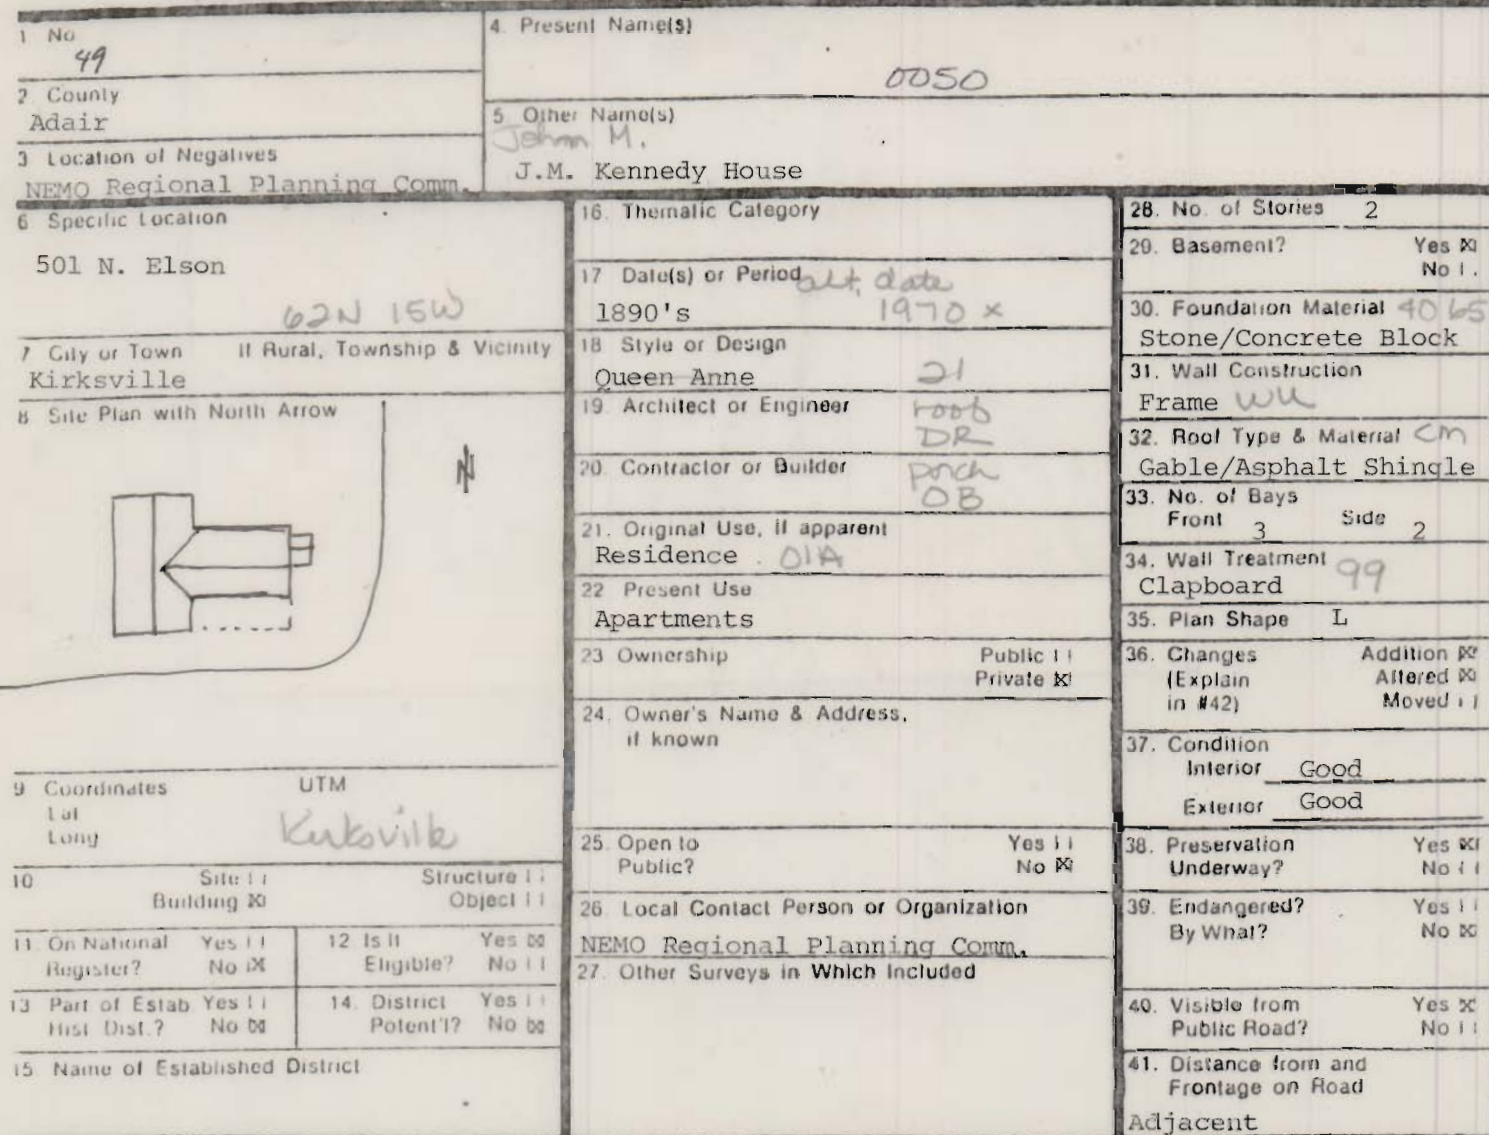 1 No
49
2 County
Adair
3 Location of Negatives
NEMO Regional Planning Comm.
4. Present Name(s)
0050
5 Other Name(s)
John M.
J.M. Kennedy House
6 Specific Location
501 N. Elson
62N 15W
7 City or Town If Rural, Township & Vicinity
Kirksville
8 Site Plan with North Arrow
N
9 Coordinates UTM
Lat
Long
Kirksville
10 Site Structure
Building X Object
11. On National Register? Yes
No X
12 Is It Eligible? Yes X
No
13 Part of Estab Hist Dist.? Yes
No X
14. District Potent'l? Yes
No X
15 Name of Established District
16. Thematic Category
17 Date(s) or Period alt. date
1890's 1970 x
18 Style or Design
Queen Anne 21
19 Architect or Engineer roof
DR
20. Contractor or Builder porch
OB
21. Original Use, if apparent
Residence 01A
22 Present Use
Apartments
23 Ownership Public
Private X
24. Owner's Name & Address,
if known
25. Open to Yes
Public? No X
26 Local Contact Person or Organization
NEMO Regional Planning Comm.
27. Other Surveys in Which Included
28. No. of Stories 2
29. Basement? Yes X
No
30. Foundation Material 40 65
Stone/Concrete Block
31. Wall Construction
Frame WU
32. Roof Type & Material CM
Gable/Asphalt Shingle
33. No. of Bays
Front 3 Side 2
34. Wall Treatment 99
Clapboard
35. Plan Shape L
36. Changes Addition X
(Explain Altered X
in #42) Moved
37. Condition
Interior Good
Exterior Good
38. Preservation Yes X
Underway? No
39. Endangered? Yes
By What? No X
40. Visible from Yes X
Public Road? No
41. Distance from and
Frontage on Road
Adjacent